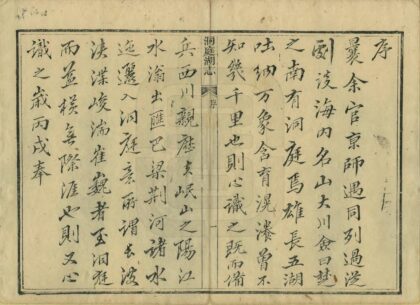 序
曩余官京師遇同列過從
劇談海內名山大川僉曰楚
之南有洞庭焉雄長五湖
吐納万象含育混瀁曾不
知幾千里也則心識之既而備
洞庭湖志
序
一
兵西川親歷夫岷山之陽江
水滃出匯巴梁荆河諸水
迤邐入洞庭意所謂長波
浹渫峻湍崔巍者至洞庭
而益横無際涯也則又心
識之歲丙戌奉